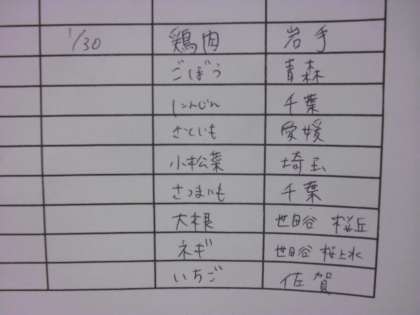 1/30 鶏肉 岩手
ごぼう 青森
にんじん 千葉
さといも 愛媛
小松菜 埼玉
さつまいも 千葉
大根 世田谷 桜丘
ネギ 世田谷 桜上水
いちご 佐賀